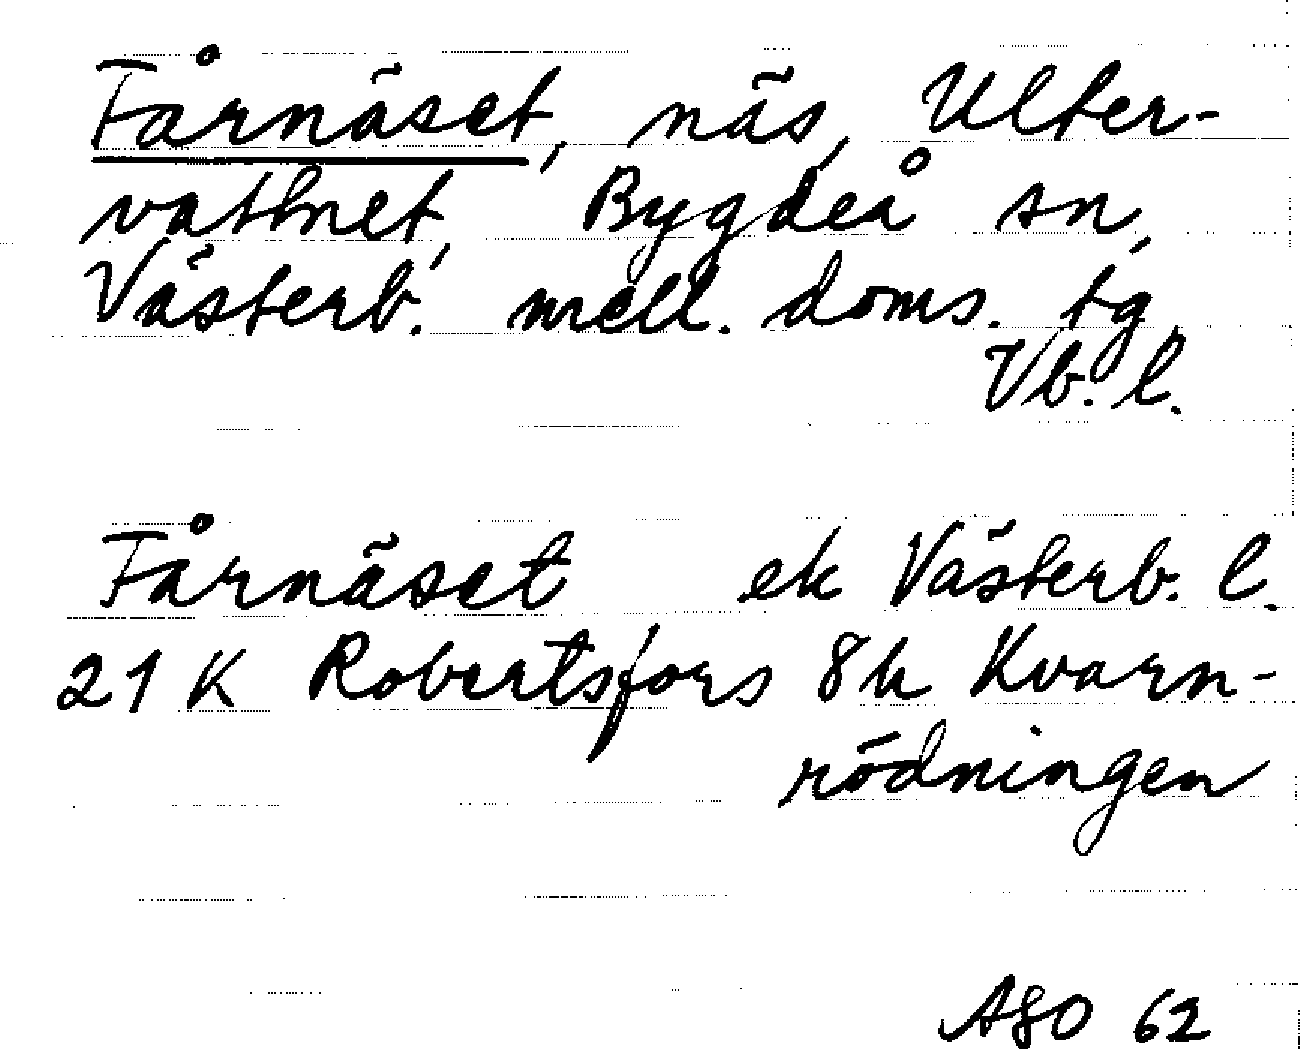 Fårnäset, näs, Ulter-
vattnet, Bygdeå sn,
Västerb. mell. doms. tg
Vb. l.
Fårnäset ek Västerb. l.
21 K Robertsfors 8h Kvarn-
rödningen
ASO 62